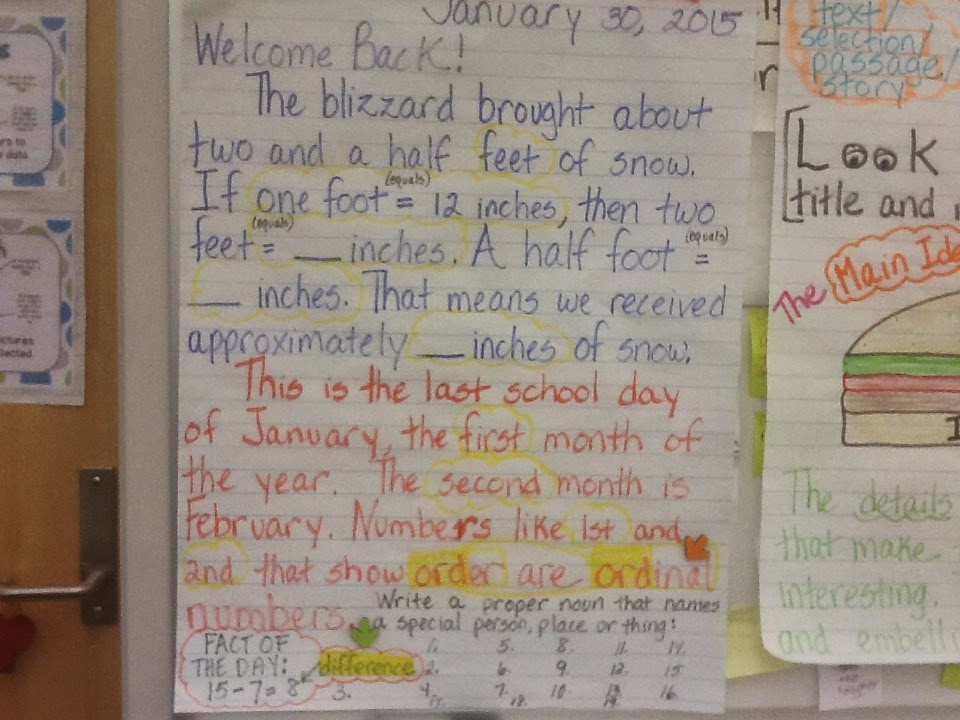 January 30, 2015
Welcome Back!
The blizzard brought about
two and a half feet of snow.
If one foot (equals) = 12 inches, then two
feet (equals) = __ inches. A half foot (equals) =
__ inches. That means we received
approximately __ inches of snow.
This is the last school day
of January, the first month of
the year. The second month is
February. Numbers like 1st and
2nd that show order are ordinal
numbers.
Write a proper noun that names
a special person, place or thing:
FACT OF
THE DAY:
15-7=8
difference
1. 5. 8. 11. 14.
2. 6. 9. 12. 15
3. 4. 7. 10. 13 16.
text/
selection/
passage/
story
Look
title and
The Main Ide
The details
that make
interesting.
and embell